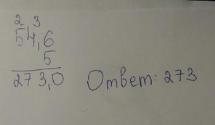 2 3
54,6
5
273,0 Ответ: 273